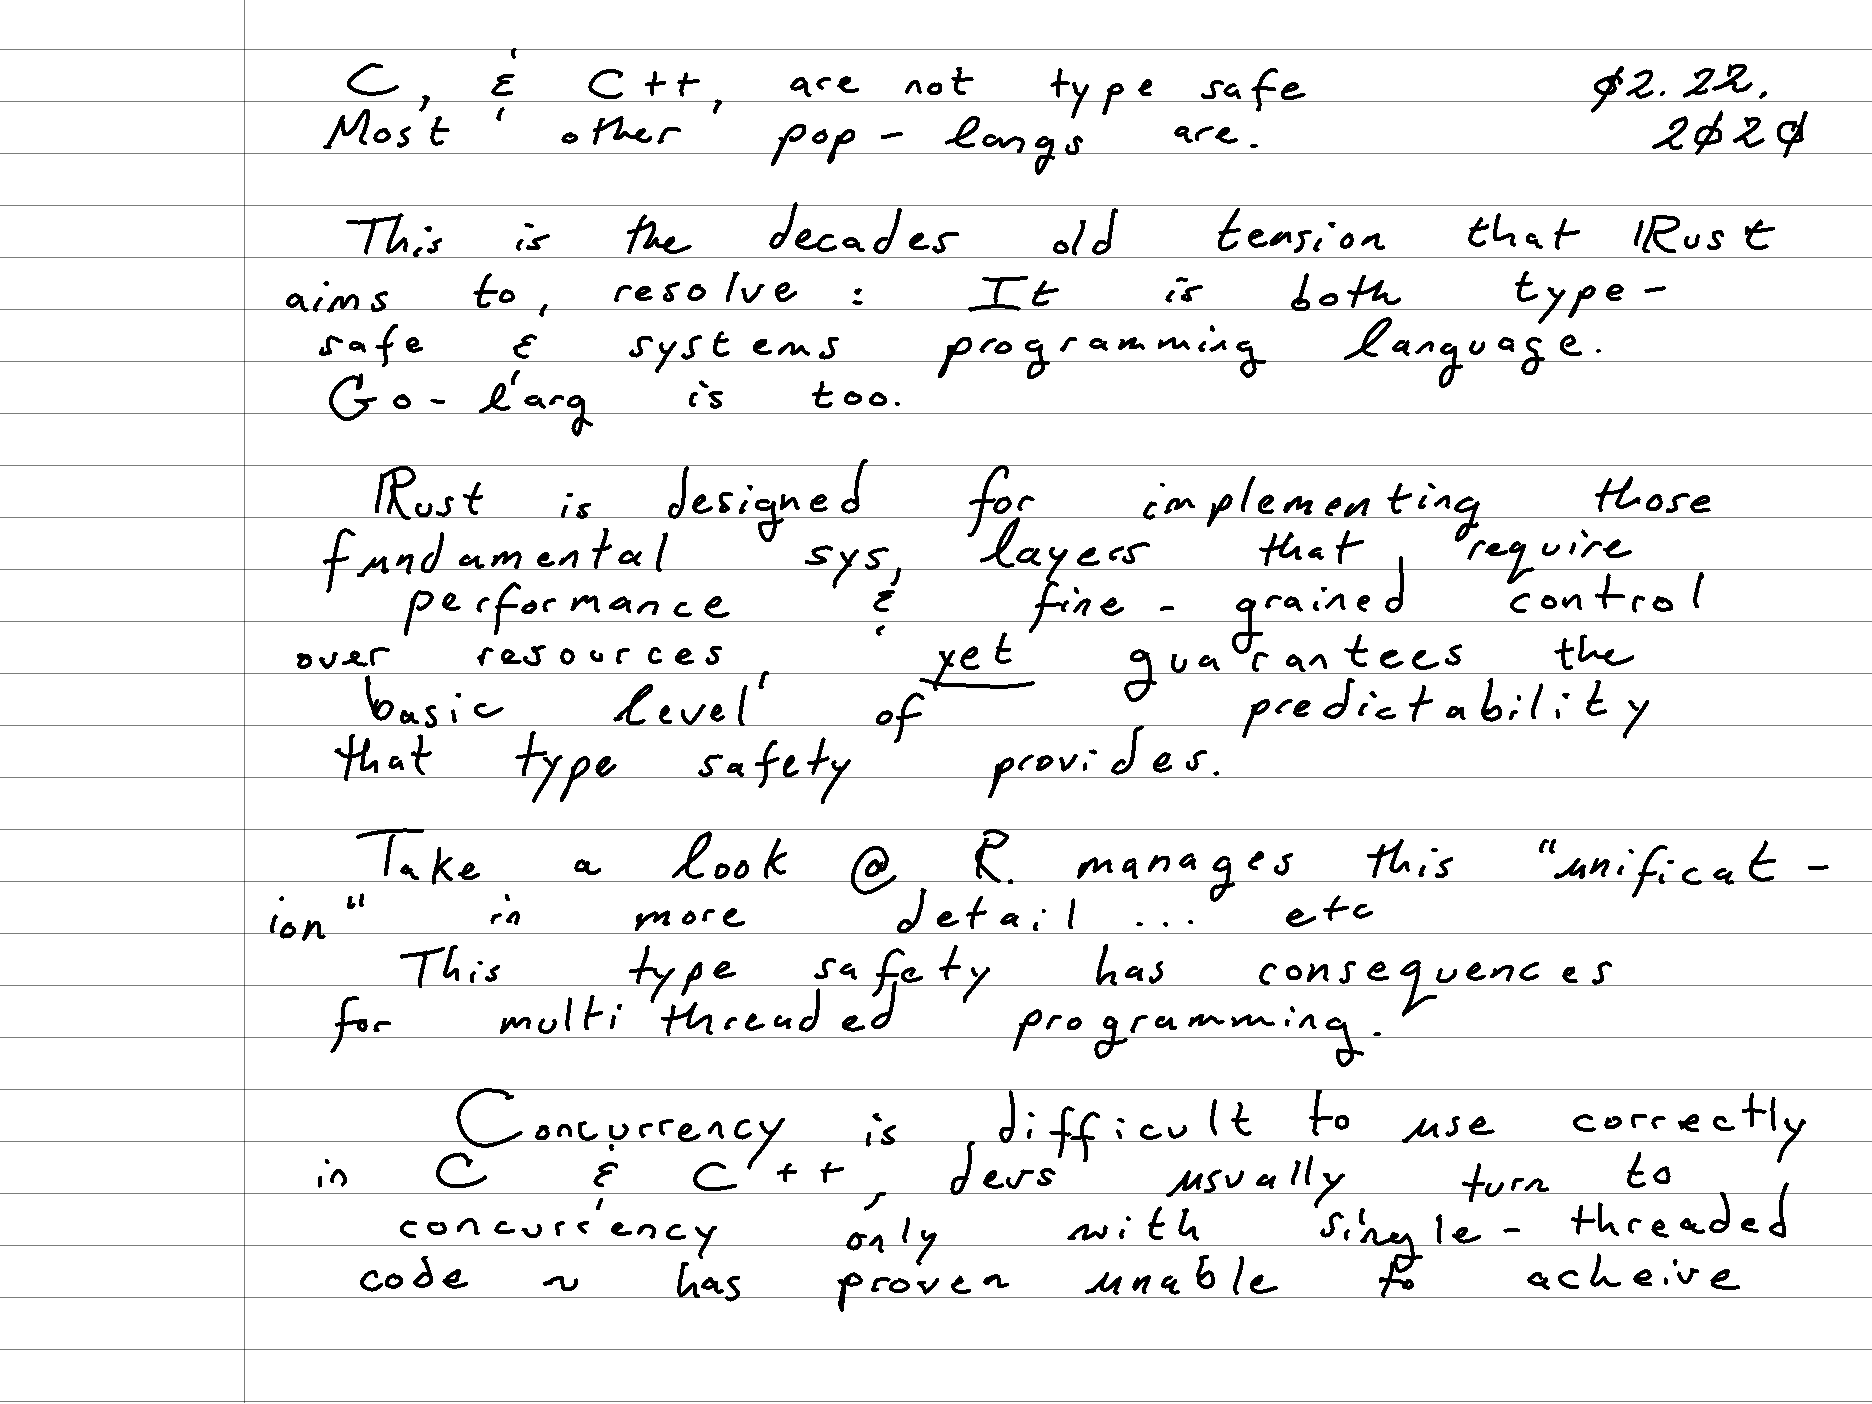 C, & C++, are not type safe
02.22.
2020
Most other pop-langs are.
This is the decades old tension that Rust
aims to, resolve: It is both type-
safe & systems programming language.
Go-lang is too.
Rust is designed for implementing those
fundamental sys, layers that require
performance & fine-grained control
over resources, yet guarantees the
basic level of predictability
that type safety provides.
Take a look @ R. manages this "unificat-
ion" in more detail ... etc
This type safety has consequences
for multi threaded programming.
Concurrency is difficult to use correctly
in C & C++, devs usually turn to
concurrency only with single-threaded
code ~ has proven unable to acheive